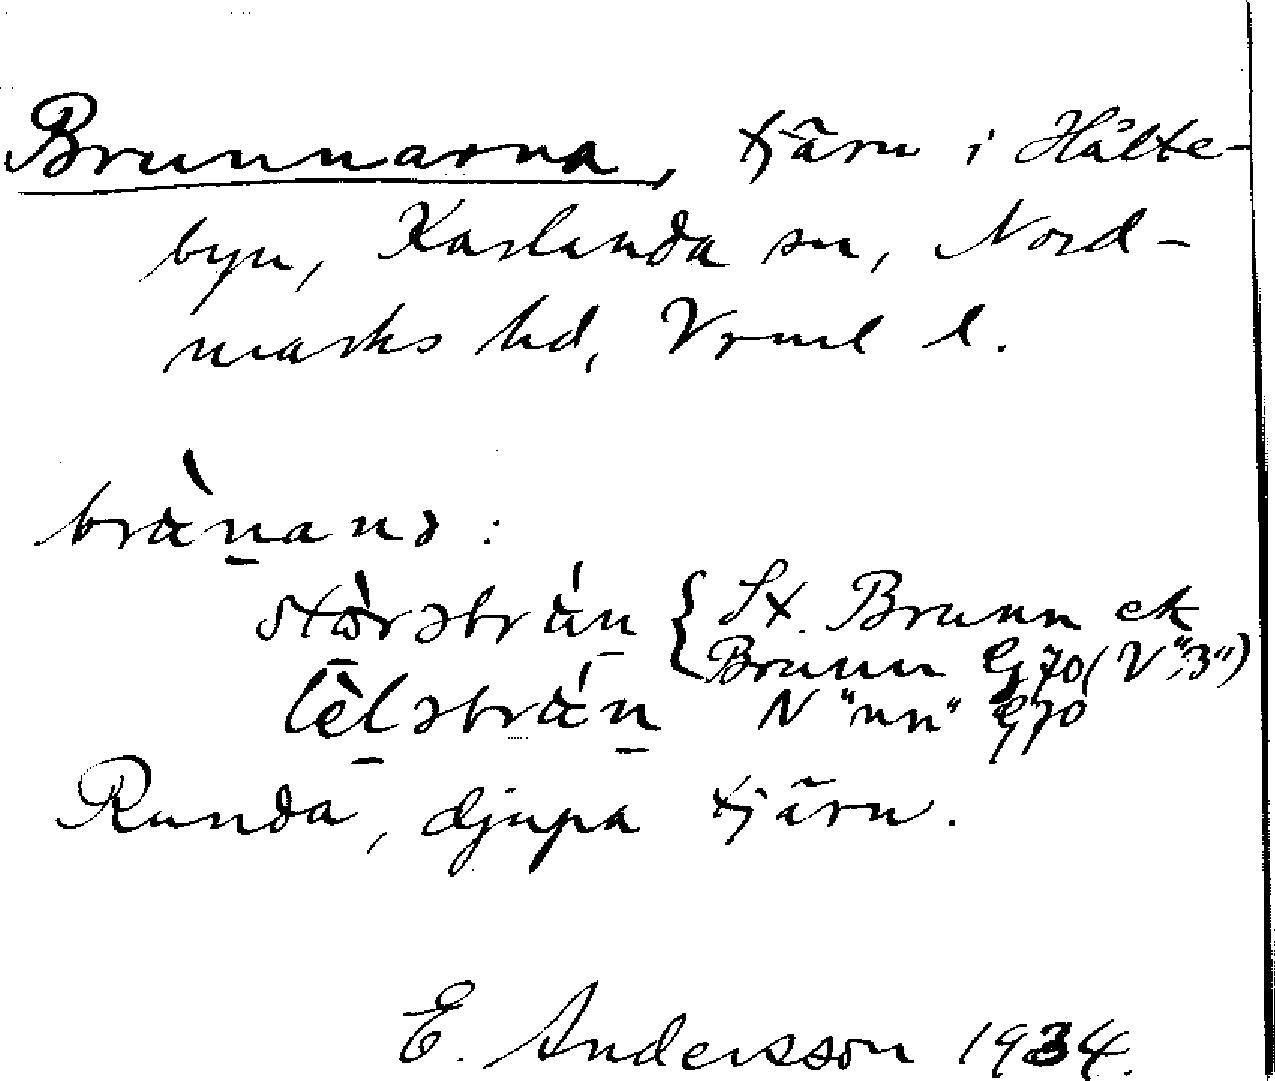 Brunnarna, tjärn i Hålte-
byn, Karlanda sn, Nord-
marks hd, Vrml l.
brànanə:
stòrəbrán { St. Brunn ek
Brunn G70 (V"3")
lèləbrán N "nn" G70
Runda, djupa tjärn.
E. Andersson 1934.